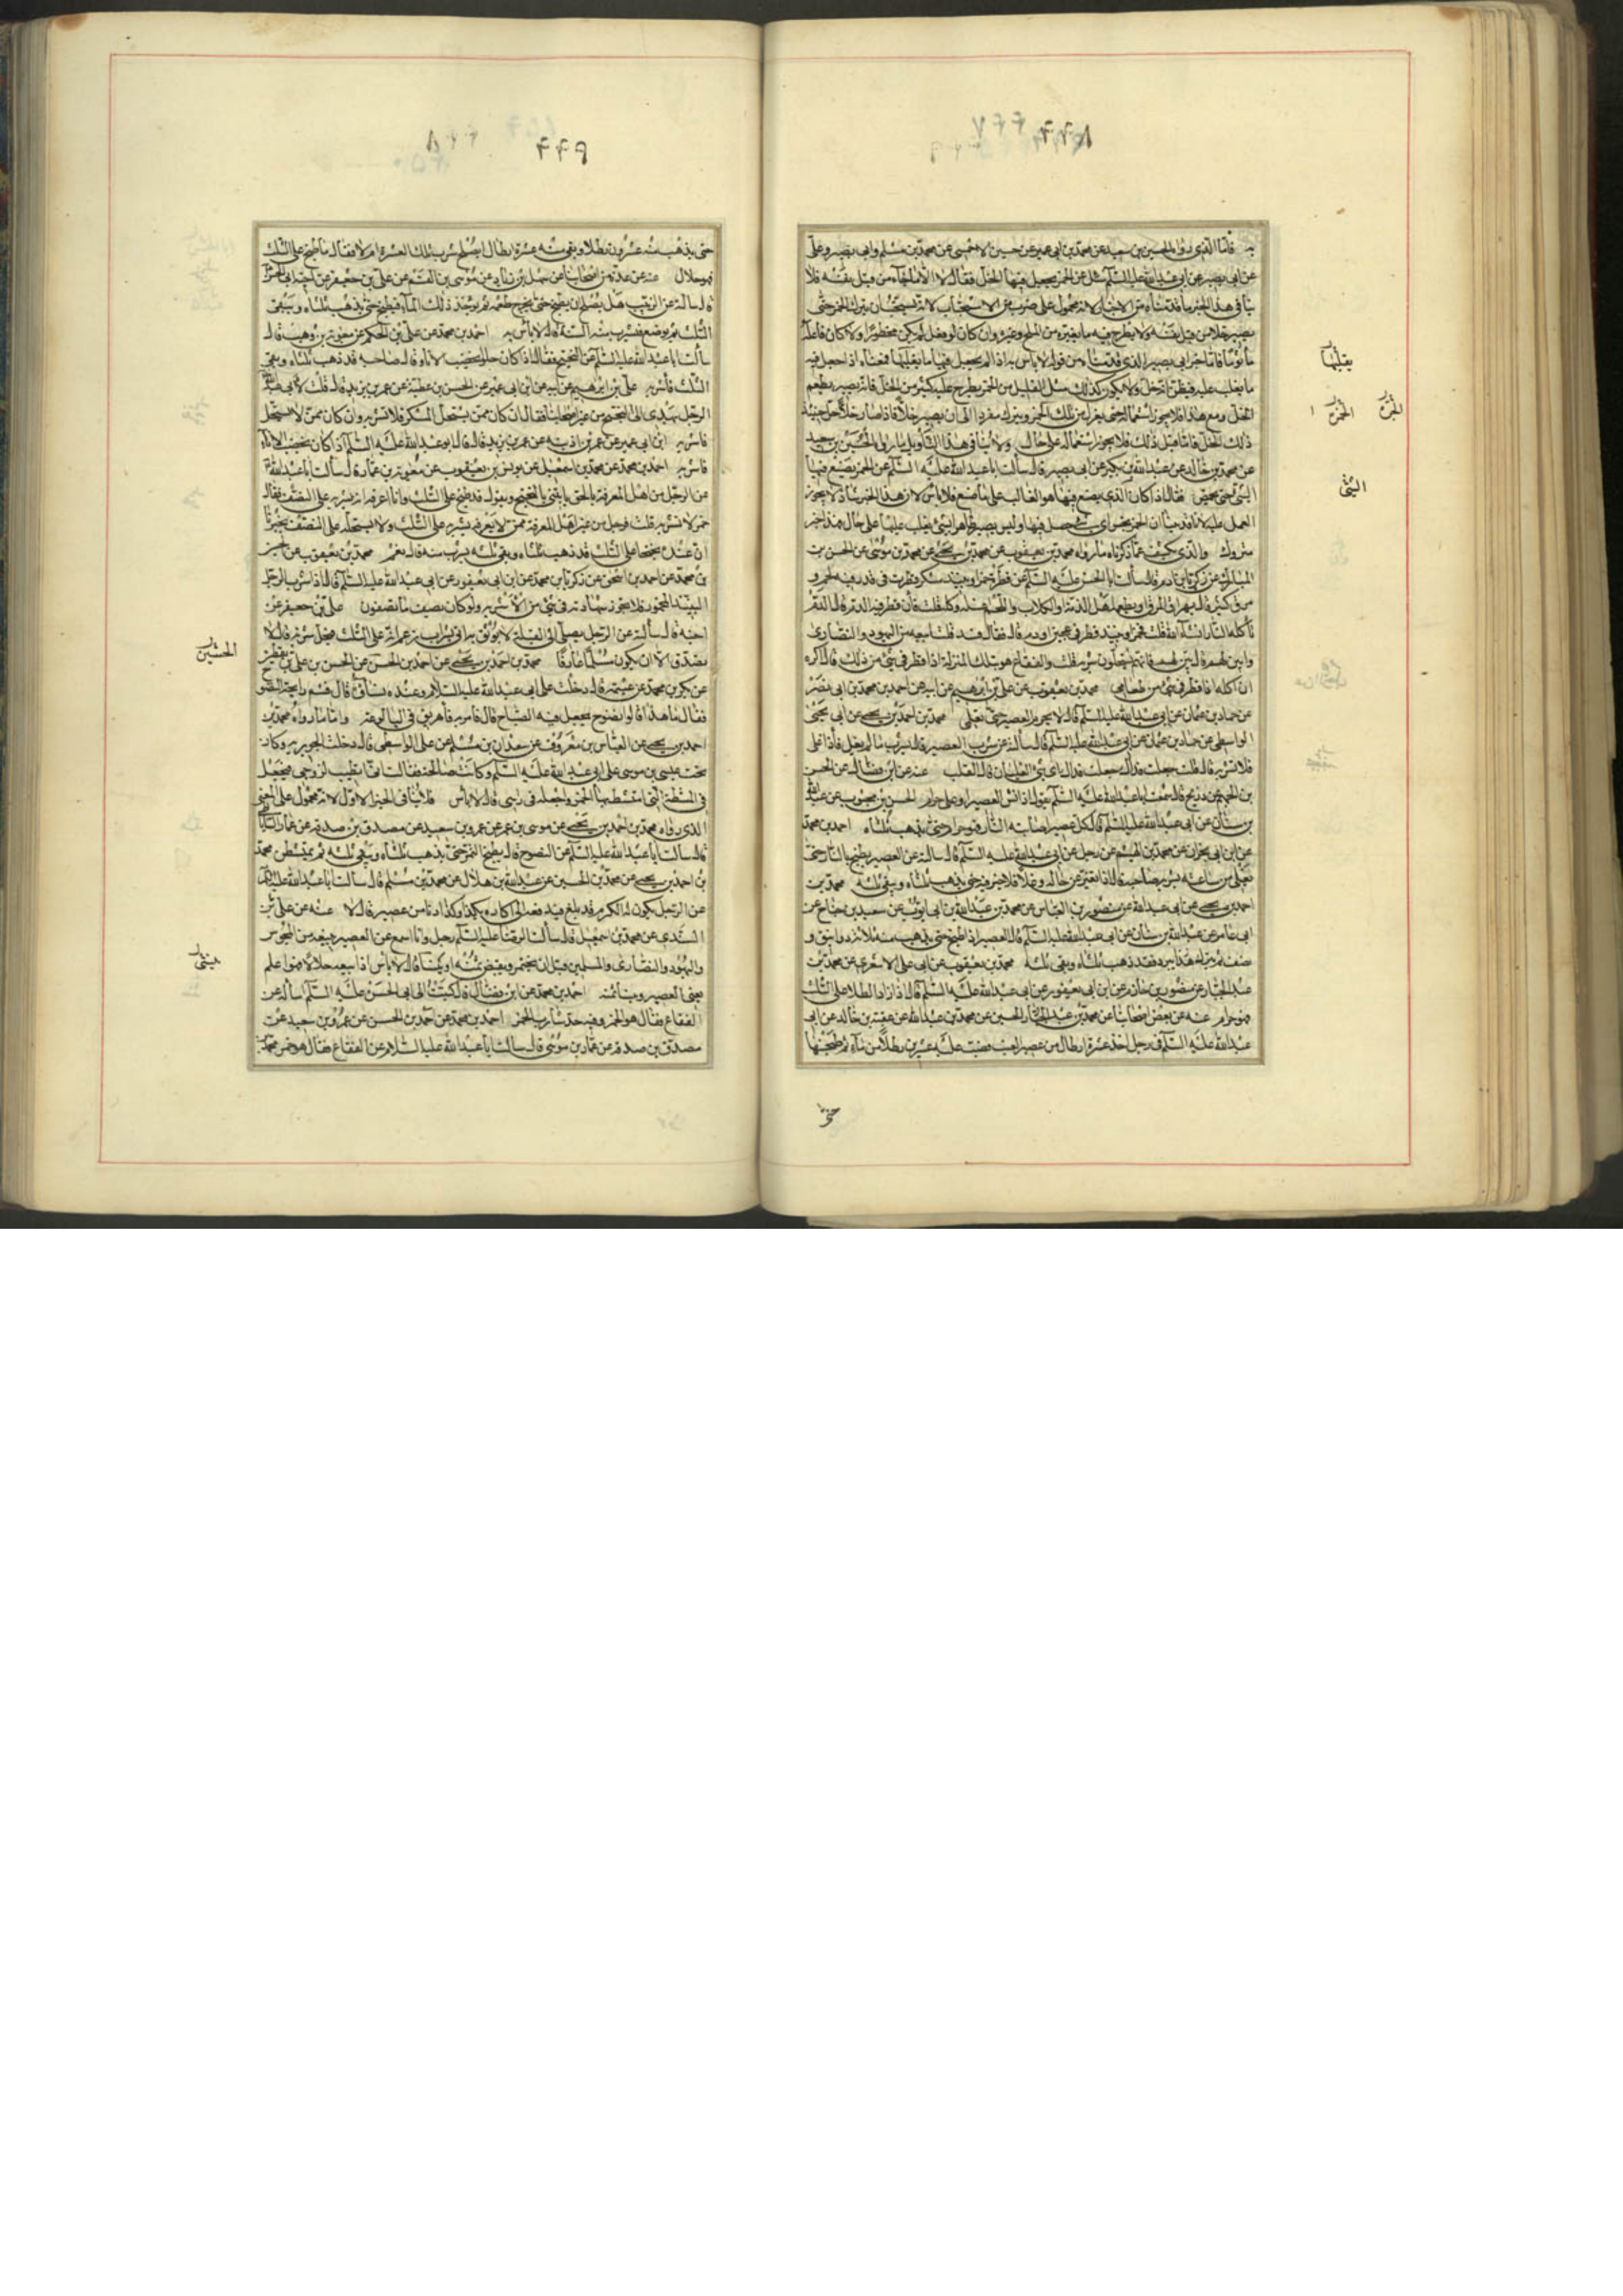 به فاما الذى رواه الحسين بن سعيد عن محمد بن ابى عمير عن حسين الاحمسى عن محمد بن مسلم وابى بصير وعلى
عن ابى بصير عن ابى عبدالله عليه السلم سئل عن الخمر يجعل فيها الخل فقال لا الا ما جاء من قبل نفسه فلا
ينافى هذا الخبر ما قدمناه من الاخبار لانه محمول على ضرب من الاستحباب لانه يستحب ان يترك الخمر حتى
يصير خلا من قبل نفسه ولا يطرح فيه ما يغيره من الملح وغيره وان كان لو فعل لم يكن محظورا ولا كان فاعله
ماثوما فاما خبر ابى بصير الذى قدمناه من قوله لا باس به اذا لم يجعل فيها ما يغلبها فمعناه اذا جعل فيه
ما يغلب عليه فيظن انه خل ولا يكون كذلك مثل القليل من الخمر يطرح عليه كثير من الخل فانه يصير بطعم
الخل ومع هذا فلا يجوز استعماله حتى يعزل من تلك الخمر ويترك مفردا الى ان يصير خلا فاذا صار خلا حل حينئذ
ذلك الخل فاما قبل ذلك فلا يجوز استعماله على حال ولا ينافى هذا التأويل ما رواه الحسين بن سعيد
عن محمد بن خالد عن عبدالله بن بكير عن ابى بصير قال سألت ابا عبدالله عليه السلم عن الخمر يصنع فيها
الشئ حتى تحمض فقال اذا كان الذى يصنع فيها هو الغالب على ما صنع فلا باس لان هذا الخبر شاذ لا يجوز
العمل عليه لانا قد بينا ان الخمر نجس اى شئ حصل فيها وليس يصير طاهرا بشئ يغلب عليها على حال فهذا خبر
متروك والذى يكشف عما ذكرناه ما رواه محمد بن يعقوب عن محمد بن يحيى عن محمد بن موسى عن الحسن بن
المبارك عن زكريا بن ادم قال سألت ابا الحسن عليه السلم عن قطرة خمر او نبيذ مسكر قطرت فى قدر فيه لحم و
مرق كثير قال يهراق المرق او يطعمه اهل الذمة والكلاب واللحم اغسله وكله قلت فان قطر فيه الدم قال الدم
تاكله النار انشاء الله قلت فخمر او نبيذ قطر فى عجين او دم قال فقال فسد قلت ابيعه من اليهود والنصارى
وابين لهم قال بين لهم فانهم يستحلون شربه قلت والفقاع هو بتلك المنزلة اذا قطر فى شئ من ذلك قال اكره
ان اكله اذا قطر فى شئ من طعامى محمد بن يعقوب عن على بن ابرهيم عن ابيه عن احمد بن محمد بن ابى نصر
عن حماد بن عثمان عن ابى عبدالله عليه السلم قال لا يحرم العصير حتى يغلى محمد بن احمد بن يحيى عن ابى يحيى
الواسطى عن حماد بن عثمان عن ابى عبدالله عليه السلم قال سألته عن شرب العصير قال اشرب ما لم يغل فاذا غلى
فلا تشربه قال قلت جعلت فداك اى شئ الغليان قال القلب عنه عن ابن فضال عن الحسن
بن الجهم عن ذريح قال سمعت ابا عبدالله عليه السلم يقول اذا نش العصير او غلى حرم الحسن بن محبوب عن عبدالله
بن سنان عن ابى عبدالله عليه السلم قال كل عصير اصابته النار فهو حرام حتى يذهب ثلثاه احمد بن محمد
عن ابن ابى نجران عن محمد بن الهيثم عن رجل عن ابى عبدالله عليه السلم قال سالته عن العصير يطبخ بالنار حتى
يغلى من ساعته يشربه صاحبه قال اذا تغير عن حاله وغلا فلا خير فيه حتى يذهب ثلثاه ويبقى ثلثه محمد بن
احمد بن يحيى عن ابى عبدالله عن منصور بن العباس عن محمد بن عبدالله بن ابى ايوب عن سعيد بن جناح عن
ابى عامر عن عبدالله بن سنان عن ابى عبدالله عليه السلم قال العصير اذا طبخ حتى يذهب منه ثلاثة دوانيق و
نصف ثم يترك حتى يبرد فقد ذهب ثلثاه وبقى ثلثه محمد بن يعقوب عن ابى على الاشعرى عن محمد بن
عبدالجبار عن منصور بن حازم عن ابن ابى يعفور عن ابى عبدالله عليه السلم قال اذا زاد الطلا على الثلث
فهو حرام عنه عن بعض اصحابنا عن محمد بن عبدالجبار الحسين عن محمد بن عبدالله عن عقبة بن خالد عن ابى
عبدالله عليه السلم فى رجل اخذ عشرة ارطال من عصير العنب فصب عليه عشرين رطلا من ماء ثم طبخهما
يغلبها
الخمرة
الشئ
حتى
حتى يذهب منه عشرون رطلا ويبقى منه عشرة ارطال ايصلح شرب تلك العشرة ام لا فقال ما طبخ على الثلث
فهو حلال عنه عن عدة من اصحابنا عن سهل بن زياد عن موسى بن القسم عن على بن جعفر عن اخيه ابى الحسن
قال سالته عن الزبيب هل يصلح ان يطبخ حتى يخرج طعمه ثم يؤخذ ذلك الماء فيطبخ حتى يذهب ثلثاه ويبقى
الثلث ثم يوضع فيشرب منه السنة قال لا باس به احمد بن محمد عن على بن الحكم عن معوية بن وهب قال
سألت ابا عبدالله عليه السلم عن البختج فقال اذا كان حلوا يخضب الاناء وقال صاحبه قد ذهب ثلثاه وبقى
الثلث فاشربه على بن ابرهيم عن ابيه عن ابن ابى عمير عن الحسن بن عطية عن عمر بن يزيد قال قلت لابى عبدالله
الرجل يهدى الى البختج من غير اصحابنا فقال ان كان ممن يستحل المسكر فلا تشربه وان كان ممن لا يستحل
فاشربه ابن ابى عمير عن عمر بن اذينه عن عمر بن يزيد قال قال ابو عبدالله عليه السلم اذا كان يخضب الاناء
فاشربه احمد بن محمد عن محمد بن اسمعيل عن يونس بن يعقوب عن معوية بن عمار قال سألت ابا عبدالله
عن الرجل من اهل المعرفة بالحق ياتينى بالبختج ويقول قد طبخ على الثلث وانا اعرف انه يشربه على النصف فقال
خمر لا تشربه قلت فرجل من غير اهل المعرفة ممن لا نعرفه يشربه على الثلث ولا يستحله على النصف يخبرنا
ان عنده بختجا على الثلث قد ذهب ثلثاه وبقى ثلثه يشرب منه قال نعم محمد بن يعقوب عن الحسين
بن محمد عن احمد بن اسحق عن زكريا بن محمد عن ابن ابى يعفور عن ابى عبدالله عليه السلم قال اذا شرب الرجل
النبيذ المخمور فلا يجوز شهادته فى شئ من الاشربه ولو كان يصف ما تصفون على بن جعفر عن
اخيه قال سألته عن الرجل يصلى الى القبلة لا يوثق به اتى بشراب يزعم انه على الثلث فيحل شربه قال لا
يصدق الا ان يكون مسلما عارفا محمد بن احمد بن يحيى عن احمد بن الحسن عن الحسن بن على بن يقطين
عن بكر بن محمد عن عيثمة قال دخلت على ابى عبدالله عليه السلام وعنده نساؤه قال فشم رايحة النضوح
فقال ما هذا قالوا نضوح يجعل فيه الضياح قال فامر به فاهريق فى البالوعة واما ما رواه محمد بن
احمد بن يحيى عن العباس بن معروف عن سعدان بن مسلم عن على الواسطى قال دخلت الجويرية وكانت
تحت عيسى بن موسى على ابى عبدالله عليه السلم وكانت صالحة فقالت انى اتطيب لزوجى فيجعل
فى المشطة التى امتشط بها الخمر واجعله فى راسى قال لا باس فلا ينافى الخبر الاول لانه محمول على المعنى
الذى رواه محمد بن احمد بن يحيى عن موسى بن عمر عن عمرو بن سعيد عن مصدق بن صدقه عن عمار الساباطى
قال سالت ابا عبدالله عليه السلم عن النضوح قال يطبخ التمر حتى يذهب ثلثاه ويبقى ثلثه ثم يمتشطن محمد
بن احمد بن يحيى عن محمد بن الحسين عن عبدالله بن هلال عن محمد بن مسلم قال سالت ابا عبدالله عليه السلم
عن الرجل يكون له الكرم قد بلغ فيدفعه الى اكاره بكذا وكذا دنا من عصير قال لا عنه عن على بن
السندى عن محمد بن اسمعيل قال سألت الرضا عليه السلم رجل وانا اسمع عن العصير يبيعه من المجوس
واليهود والنصارى والمسلمين قبل ان يختمر ويقبض ثمنه او ينساه قال لا باس اذا بيعه حلالا فهو اعلم
يعنى العصير وبنا ثمنه احمد بن محمد عن ابن فضال قال كتبت الى ابى الحسن عليه السلم اسأله عن
الفقاع فقال هو الخمر وفيه حد شارب الخمر احمد بن محمد عن احمد بن الحسن عن عمرو بن سعيد عن
مصدق بن صدقه عن عمار بن موسى قال سألت ابا عبدالله عليه السلام عن الفقاع فقال هو خمر محمد بن
الحسين